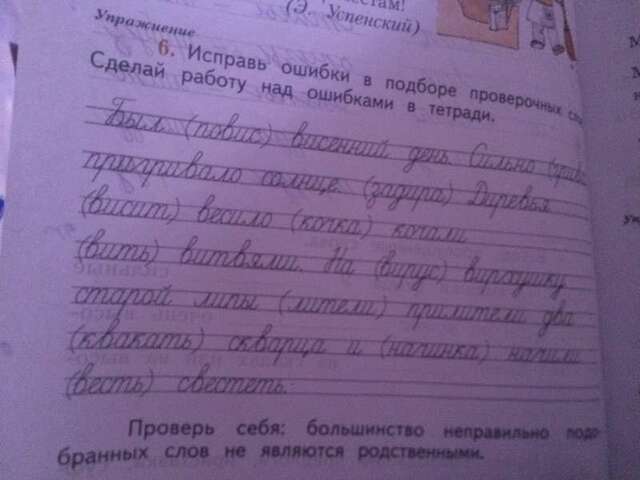 естам!
(Э. Успенский)
Упражнение
6. Исправь ошибки в подборе проверочных
Сделай работу над ошибками в тетради.
Был (повис) висенний день. Сильно
пригривало солнце. (задира) Диревья
(висит) весило (кочка) качали
(вить) витвями. На (вирус) вирхушку
старой липы (лители) прилители два
(квакать) скварца и (начинка) начили
(весть) свестеть.
Проверь себя: большинство неправильно подо-
бранных слов не являются родственными.